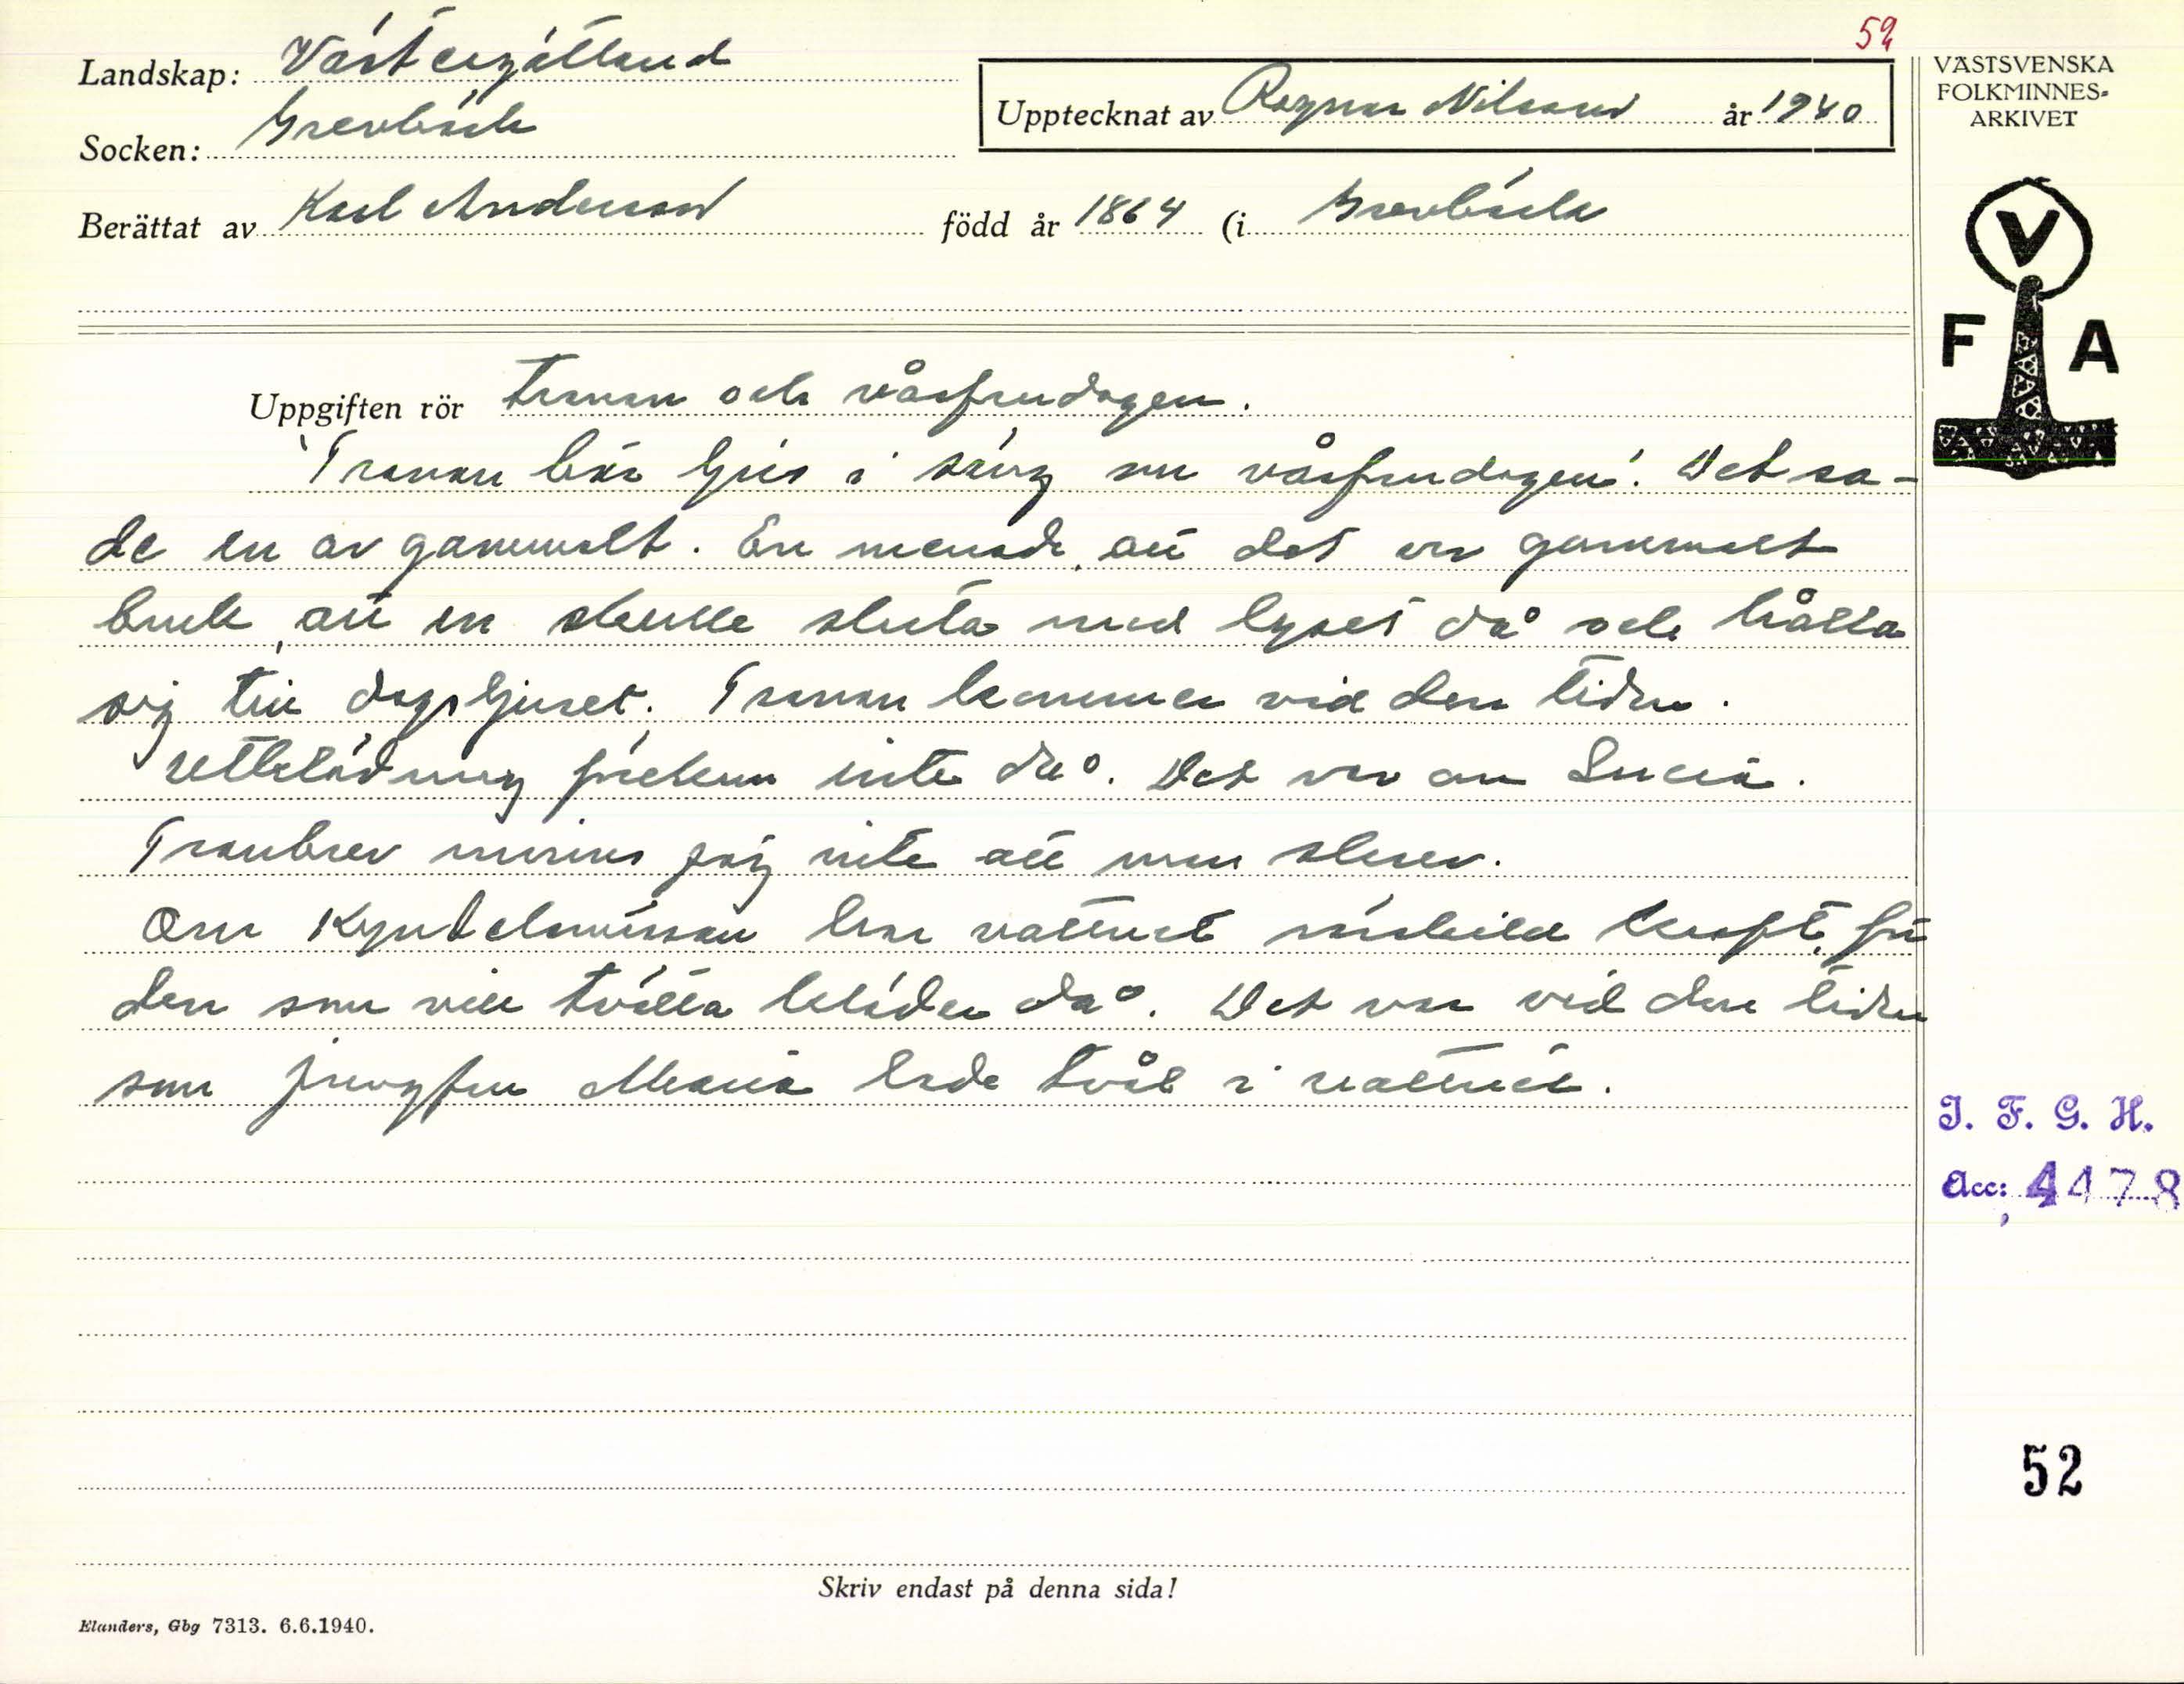 52
Landskap: Västergötland
Socken: Grevbäck
Upptecknat av Ragnar Nilsson år 1940
Berättat av Karl Andersson född år 1864 (i Grevbäck
VÄSTSVENSKA
FOLKMINNES-
ARKIVET
V
F A
Uppgiften rör Tranan och vårfrudagen.
"Tranan bär ljus i säng om vårfrudagen". Det sa-
de en av gammalt. En menade, att det var gammalt
bruk, att en skulle sluta med lyset då och hålla
sig till dagsljuset. Tranan kommer vid den tiden.
Utklädning förekom inte då. Det var om Lucia.
Tranbrev minns jag inte att man skrev.
Om Kyndelsmässan har vattnet särskild kraft, för
den som vill tvätta kläder då. Det var vid den tiden
som jungfru Maria lade tvål i vattnet.
I. F. G. H.
Acc: 4478
52
Skriv endast på denna sida!
Elanders, Gbg 7313. 6.6.1940.